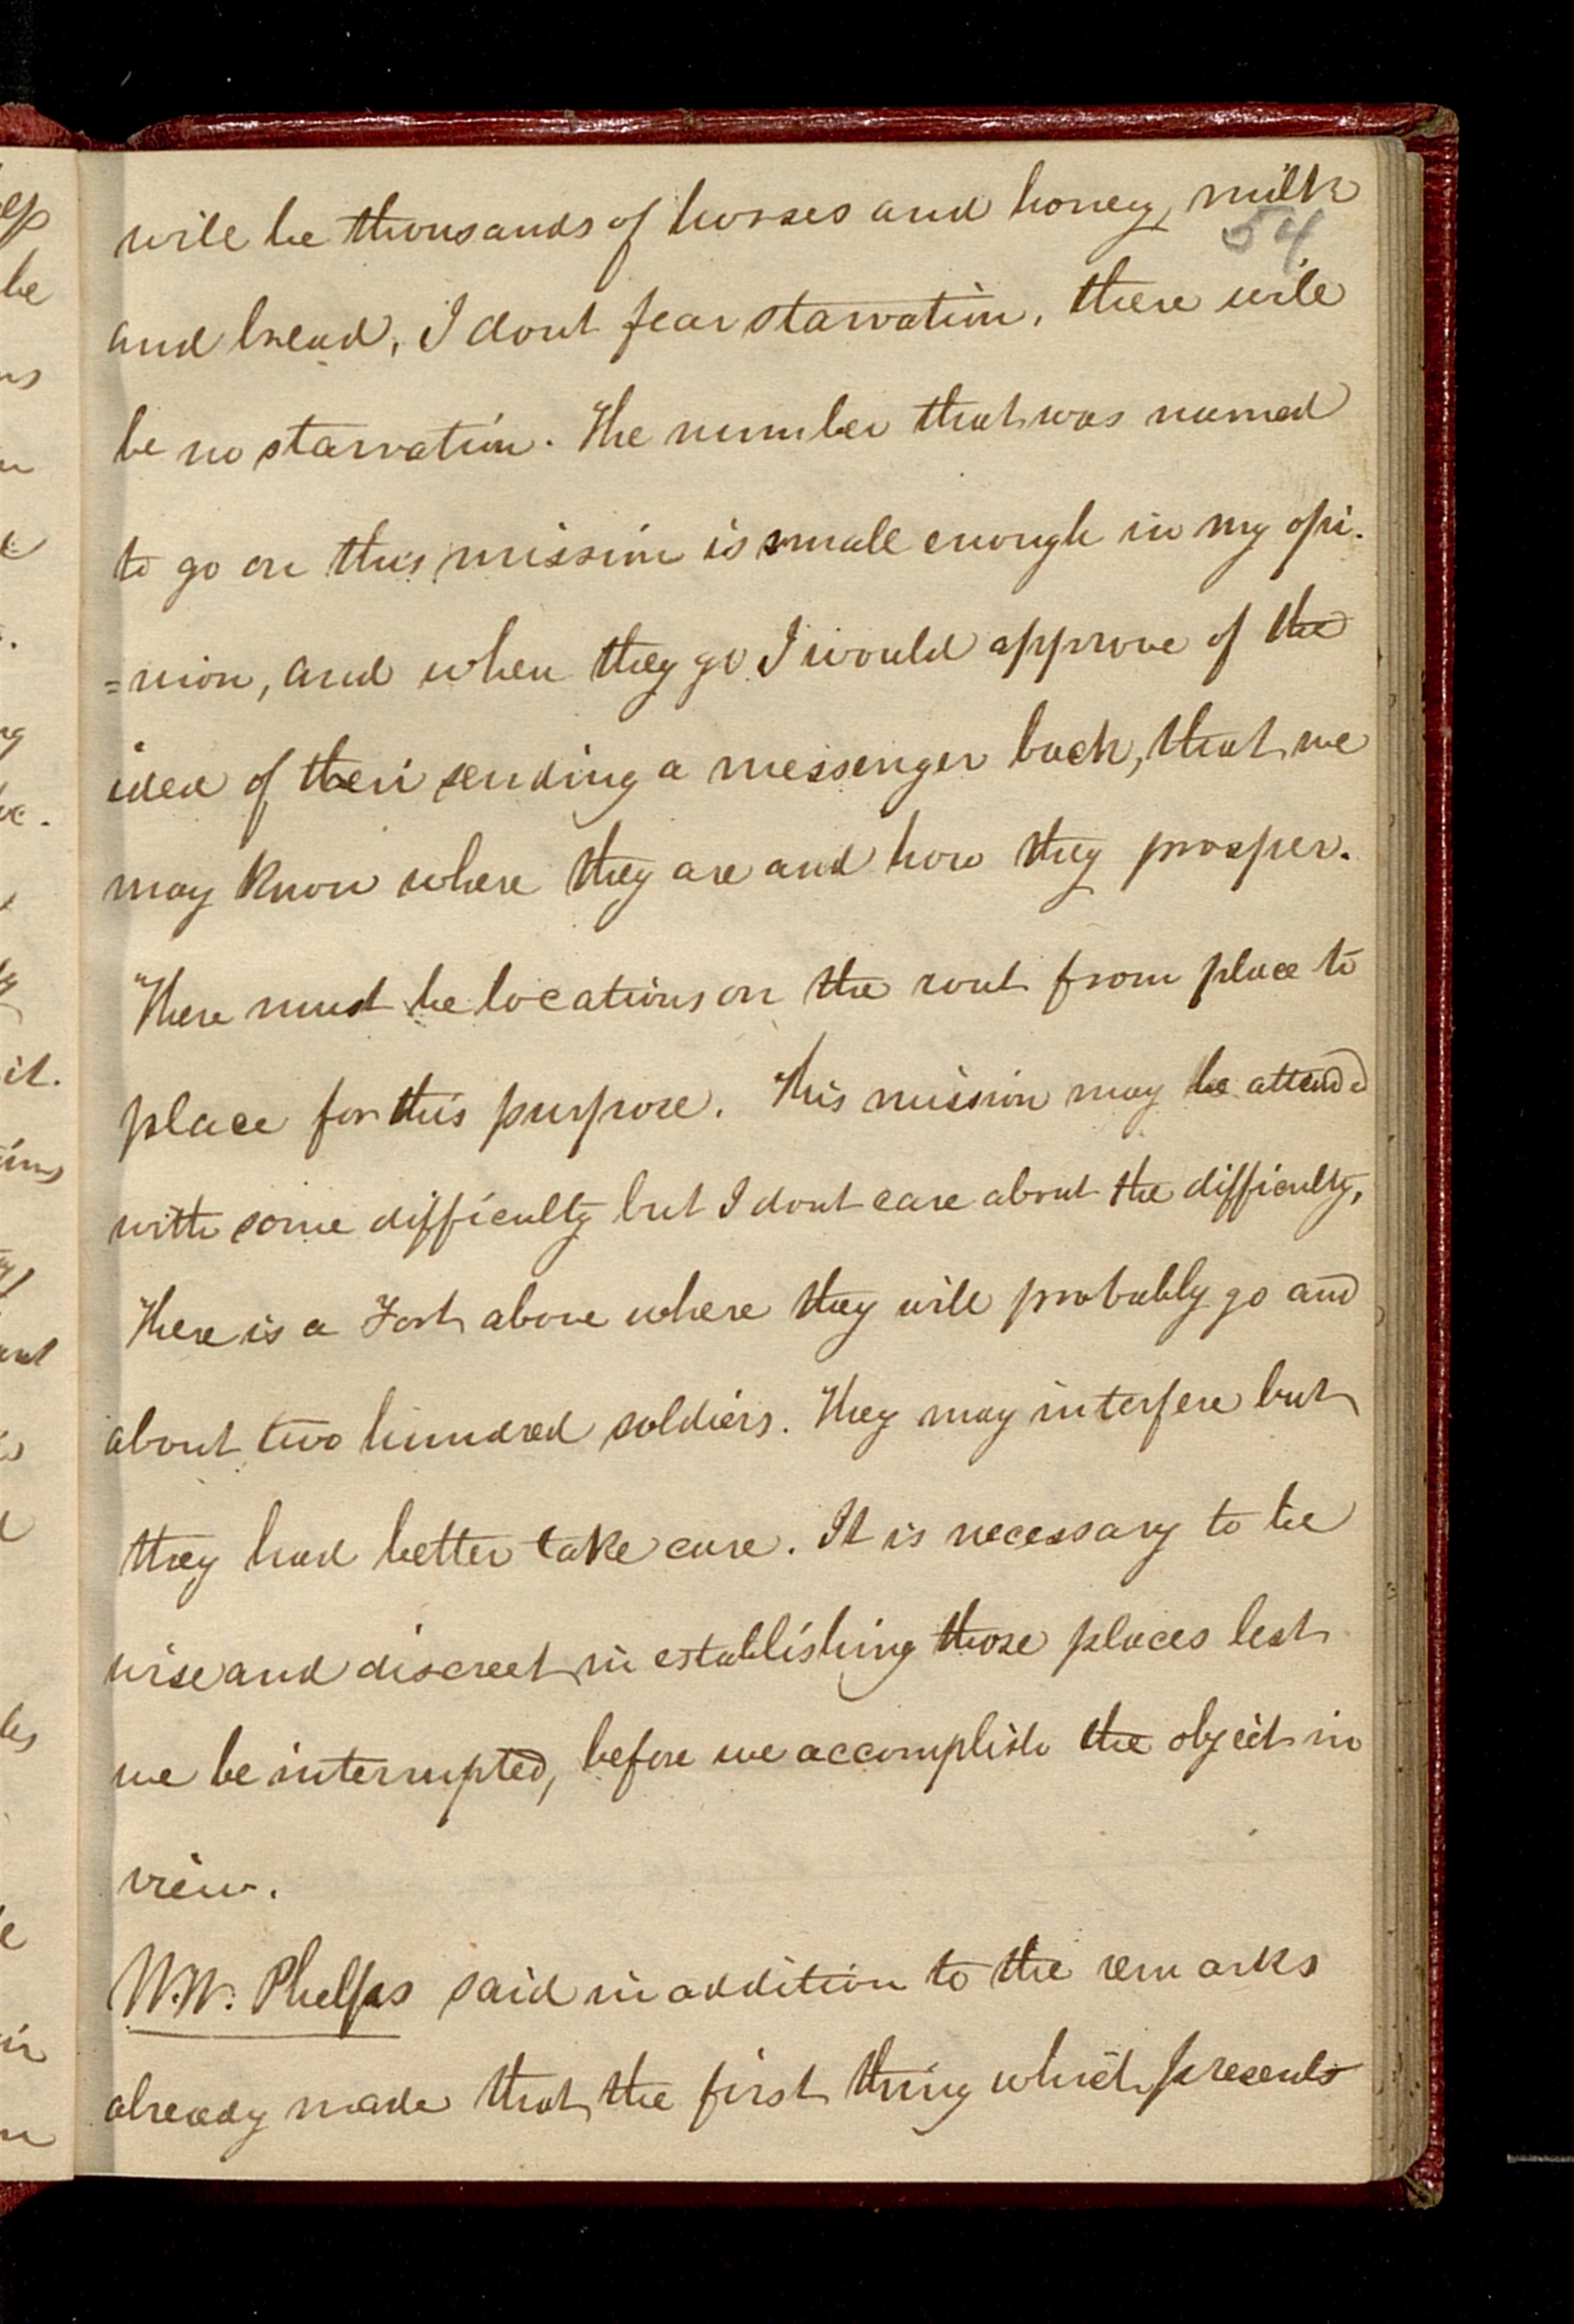 will be thousands of horses and honey, milk
54
and bread, I dont fear starvation, there will
be no starvation. The number that was named
to go on this mission is small enough in my opi-
=nion, and when they go I would approve of the
idea of their sending a messenger back, that we
may know where they are and how they prosper.
There must be locations on the rout from place to
place for this purpose. This mission may be attended
with some difficulty but I dont care about the difficulty,
There is a Fort above where they will probably go and
about two hundred soldiers. They may interfere but
they had better take care. It is necessary to be
wise and discreet in establishing those places lest
we be interrupted, before we accomplish the object in
view.
W.W. Phelps said in addition to the remarks
already made that the first thing which presents